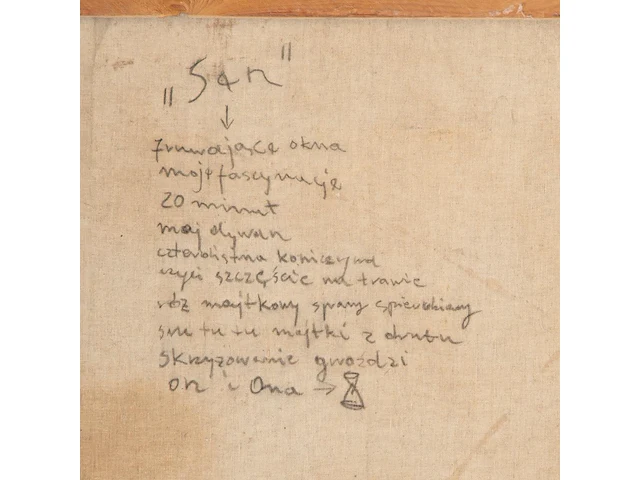 „Sen"
↓
fruwające okna
moje fascynacje
20 minut
moj dywan
czterolistna koniczyna
czyli szczęście na trawie
róż majtkowy sprany
tu tu majtki z drutu
skrzyżowanie gwoździ
on i Ona →